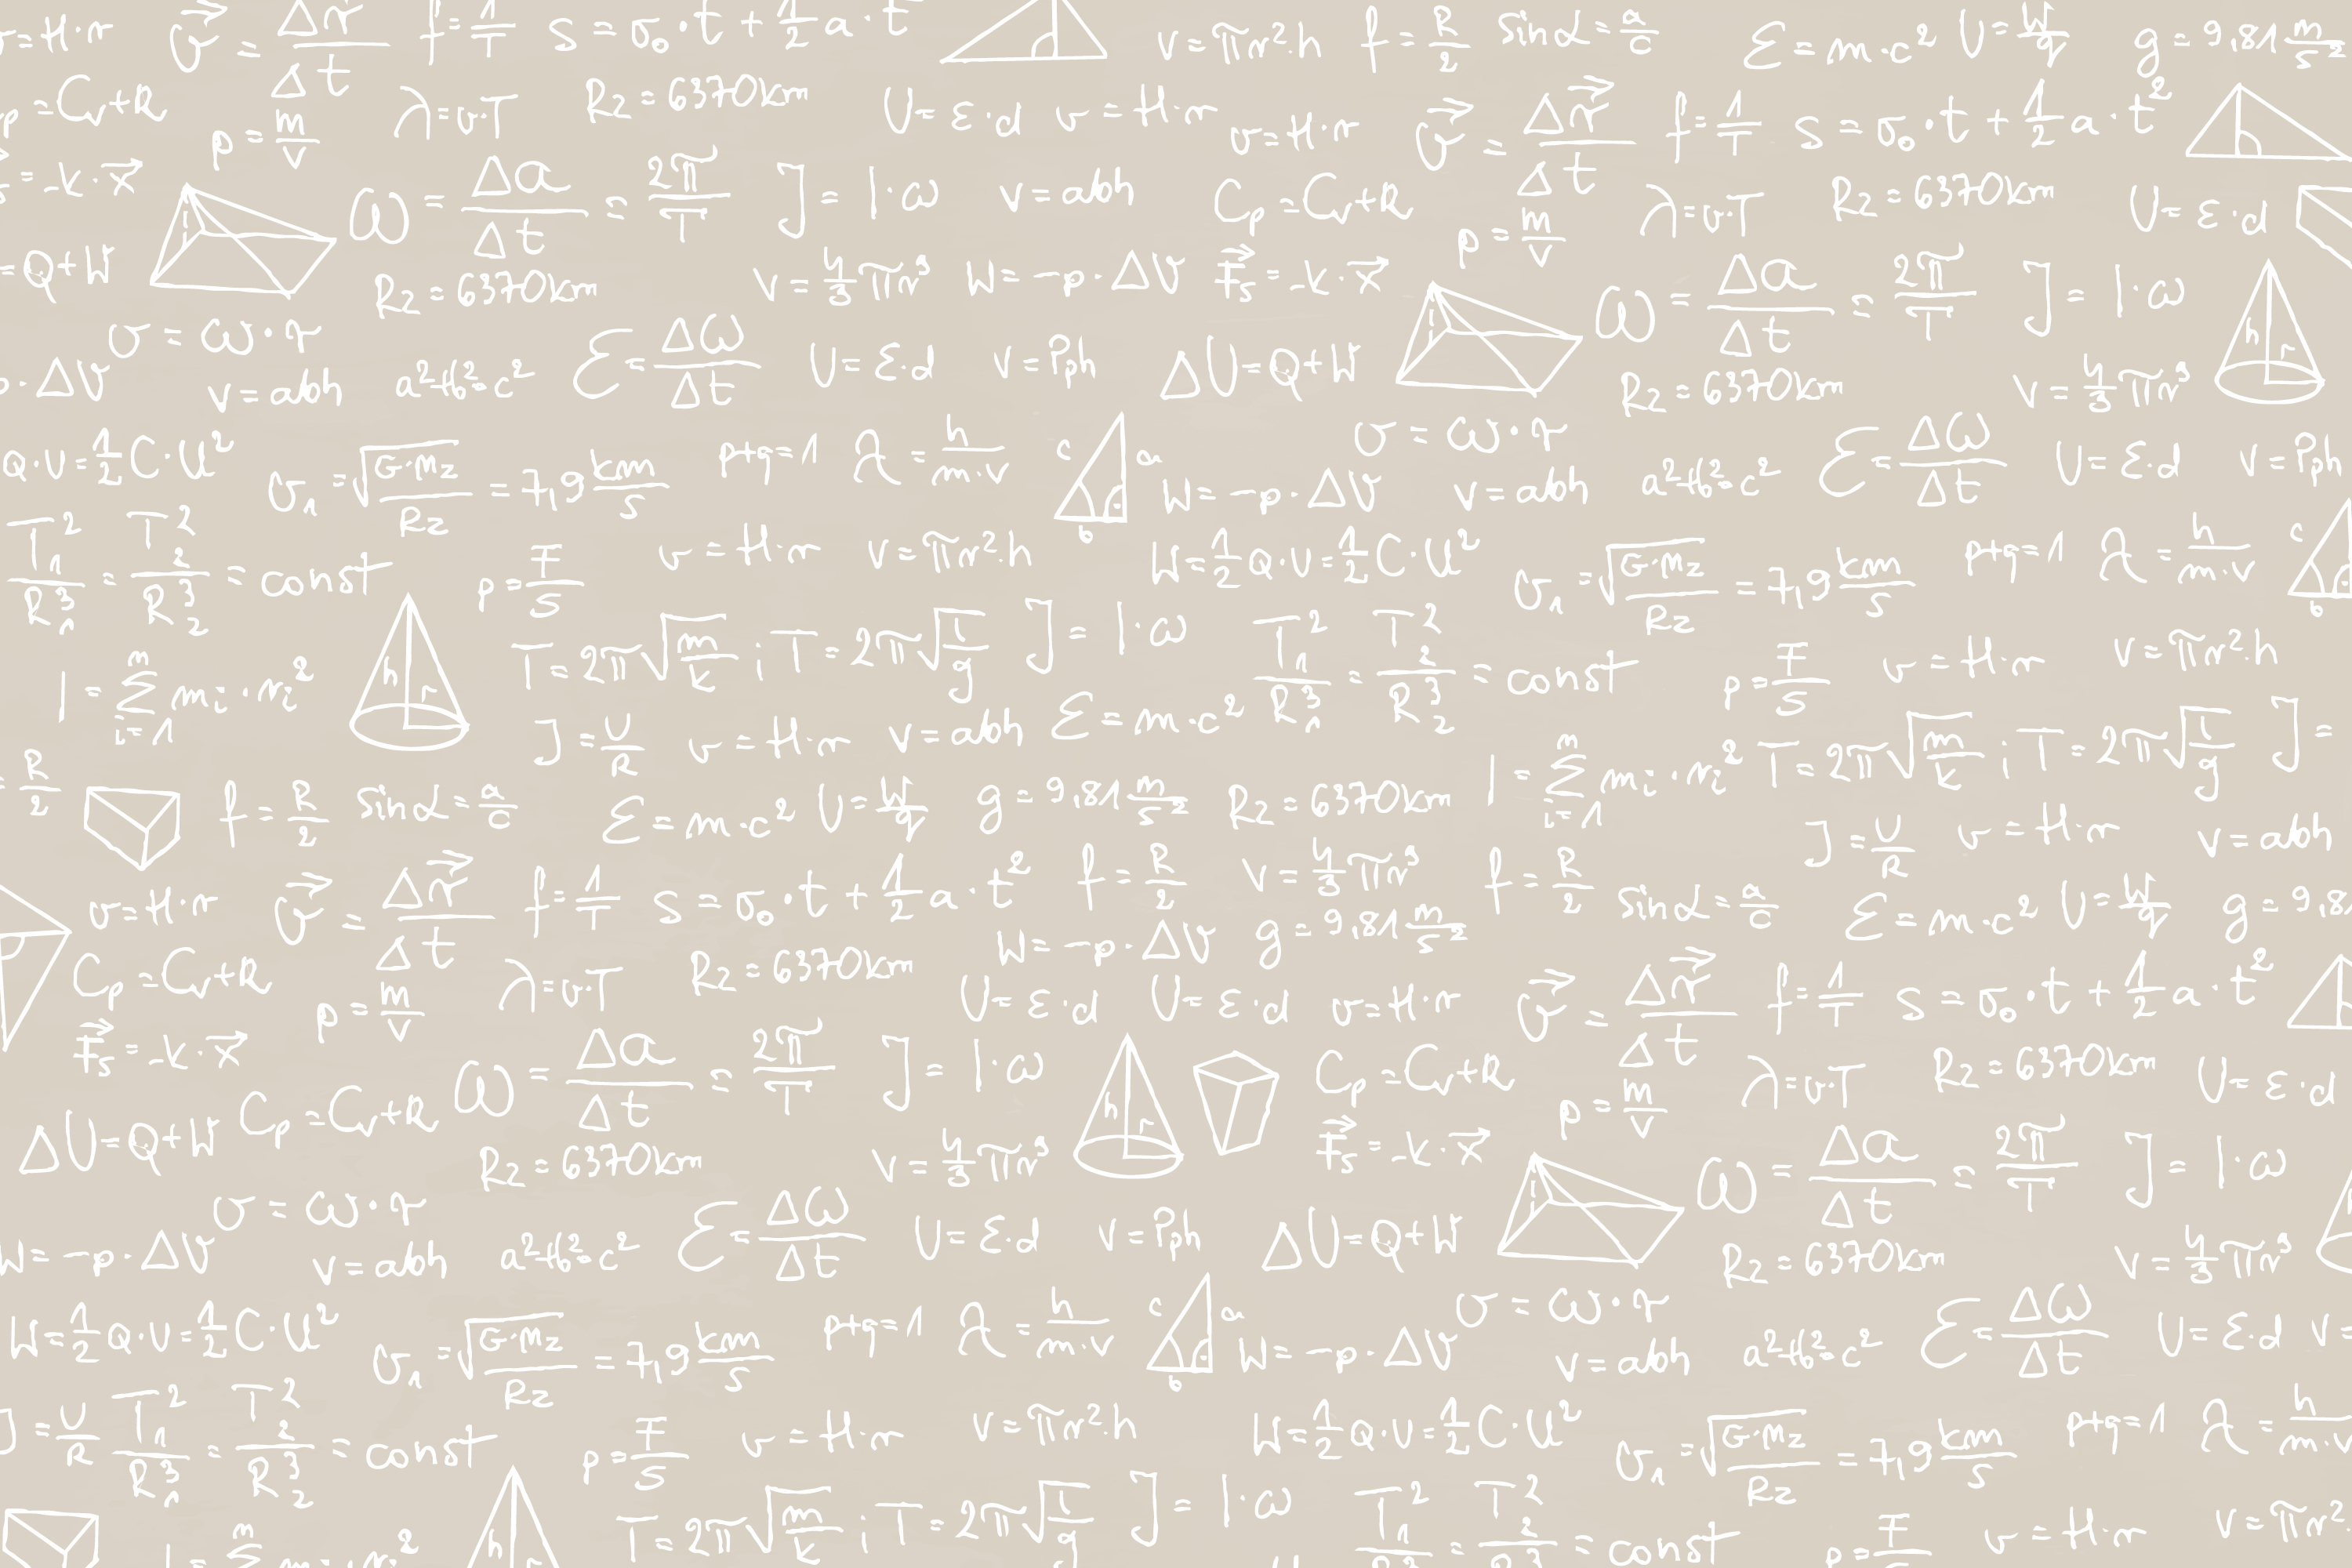 v = H·r   v⃗ = Δr⃗/Δt   f = 1/T   s = v₀·t + 1/2 a·t   v = πr²·h   f = R/2   sinα = a/c   E = m·c²   U = W/q   g = 9.81 m/s²
p = Cv + R   ρ = m/v   λ = v·T   Rz = 6370km   U = ε·d   v = H·r   v = H·r   v⃗ = Δr⃗/Δt   f = 1/T   s = v₀·t + 1/2 a·t²
= -k·x⃗   ω = Δa/Δt = 2π/T   J = I·ω   v = abh   Cp = Cv + R   ρ = m/v   λ = v·T   Rz = 6370km   U = ε·d
= Q+W   Rz = 6370km   v = 4/3 πr³   W = -p·ΔV   F⃗s = -k·x⃗   ω = Δa/Δt = 2π/T   J = I·ω   h r
p·ΔV   v = ω·r   v = abh   a²+b²=c²   ε = Δω/Δt   U = ε·d   v = Pph   ΔU = Q+W   Rz = 6370km   v = 4/3 πr³
Q·U = 1/2 C·U²   v₁ = √(G·Mz/Rz) = 7,9 km/s   p+q=1   λ = h/m·v   c a b   v = ω·r   W = -p·ΔV   v = abh   a²+b²=c²   ε = Δω/Δt   U = ε·d   v = Pph
T₁²/R₁³ = T₂²/R₂³ = const   p = F/S   v = H·r   v = πr²·h   W = 1/2 Q·U = 1/2 C·U²   v₁ = √(G·Mz/Rz) = 7,9 km/s   p+q=1   λ = h/m·v   c b
I = Σ mi·ri²   n   i=1   h r   T = 2π√(m/k) ; T = 2π√(l/g)   J = I·ω   T₁²/R₁³ = T₂²/R₂³ = const   p = F/S   v = H·r   v = πr²·h
J = U/R   v = H·r   v = abh   E = m·c²   I = Σ mi·ri²   n   i=1   T = 2π√(m/k) ; T = 2π√(l/g)   J =
R/2   f = R/2   sinα = a/c   E = m·c²   U = W/q   g = 9.81 m/s²   Rz = 6370km   J = U/R   v = H·r   v = abh
v = H·r   v⃗ = Δr⃗/Δt   f = 1/T   s = v₀·t + 1/2 a·t²   f = R/2   v = 4/3 πr³   f = R/2   sinα = a/c   E = m·c²   U = W/q   g = 9.8
Cp = Cv + R   ρ = m/v   λ = v·T   Rz = 6370km   W = -p·ΔV   g = 9.81 m/s²
F⃗s = -k·x⃗   U = ε·d   U = ε·d   v = H·r   v⃗ = Δr⃗/Δt   f = 1/T   s = v₀·t + 1/2 a·t²
ΔU = Q+W   Cp = Cv + R   ω = Δa/Δt = 2π/T   J = I·ω   h r   Cp = Cv + R   ρ = m/v   λ = v·T   Rz = 6370km   U = ε·d
Rz = 6370km   v = 4/3 πr³   F⃗s = -k·x⃗   ω = Δa/Δt = 2π/T   J = I·ω
W = -p·ΔV   v = ω·r   v = abh   a²+b²=c²   ε = Δω/Δt   U = ε·d   v = Pph   ΔU = Q+W   Rz = 6370km   v = 4/3 πr³
W = 1/2 Q·U = 1/2 C·U²   v₁ = √(G·Mz/Rz) = 7,9 km/s   p+q=1   λ = h/m·v   c a b   W = -p·ΔV   v = ω·r   v = abh   a²+b²=c²   ε = Δω/Δt   U = ε·d   v =
J = U/R   T₁²/R₁³ = T₂²/R₂³ = const   p = F/S   v = H·r   v = πr²·h   W = 1/2 Q·U = 1/2 C·U²   v₁ = √(G·Mz/Rz) = 7,9 km/s   p+q=1   λ = h/m·v
h   T = 2π√(m/k) ; T = 2π√(l/g)   J = I·ω   T₁²   T₂²   = const   p = F/S   v = H·r   v = πr²